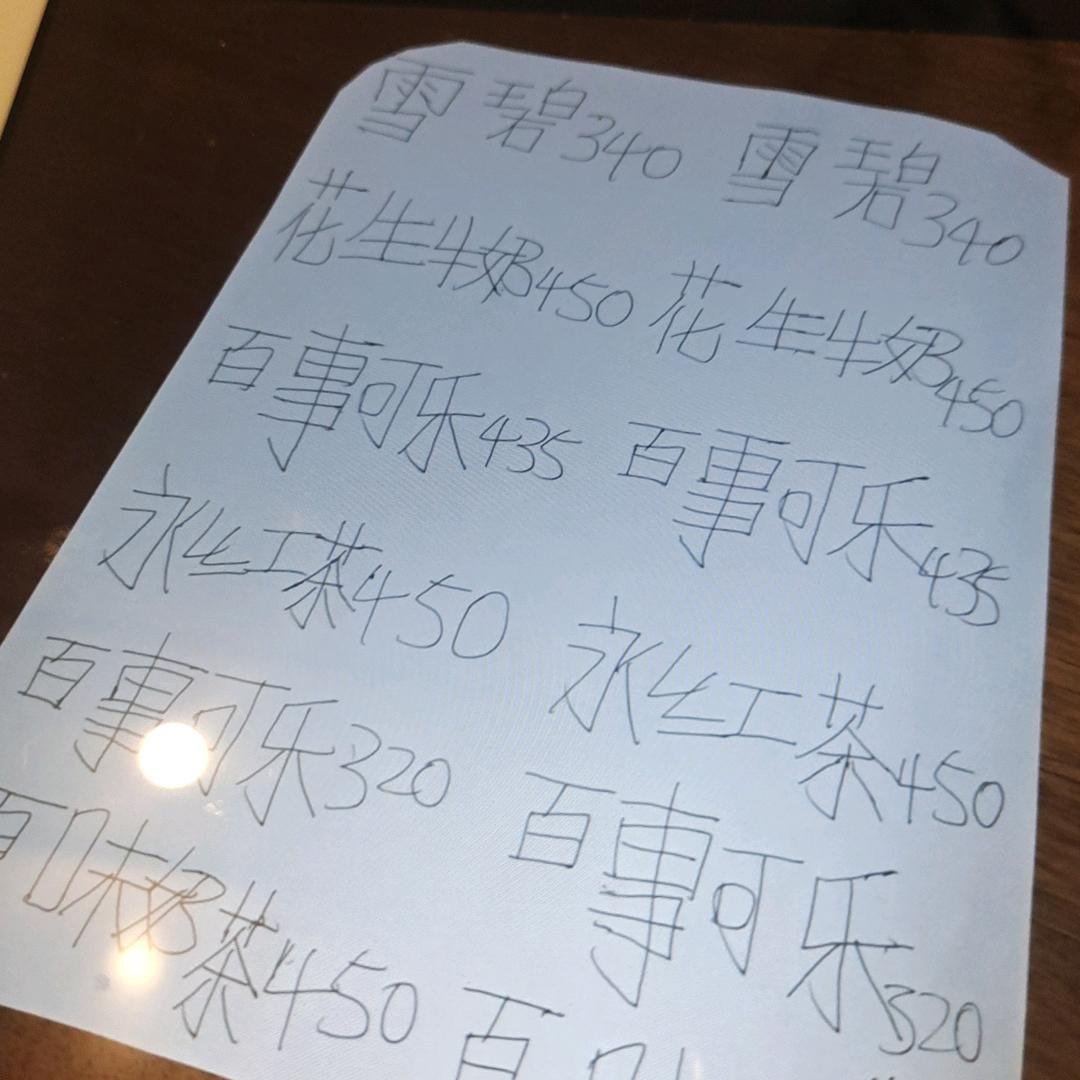 雪碧340 雪碧340
花生牛奶450 花生牛奶450
百事可乐435 百事可乐435
永红茶450 永红茶450
百事可乐320 百事可乐320
百味奶茶450 百